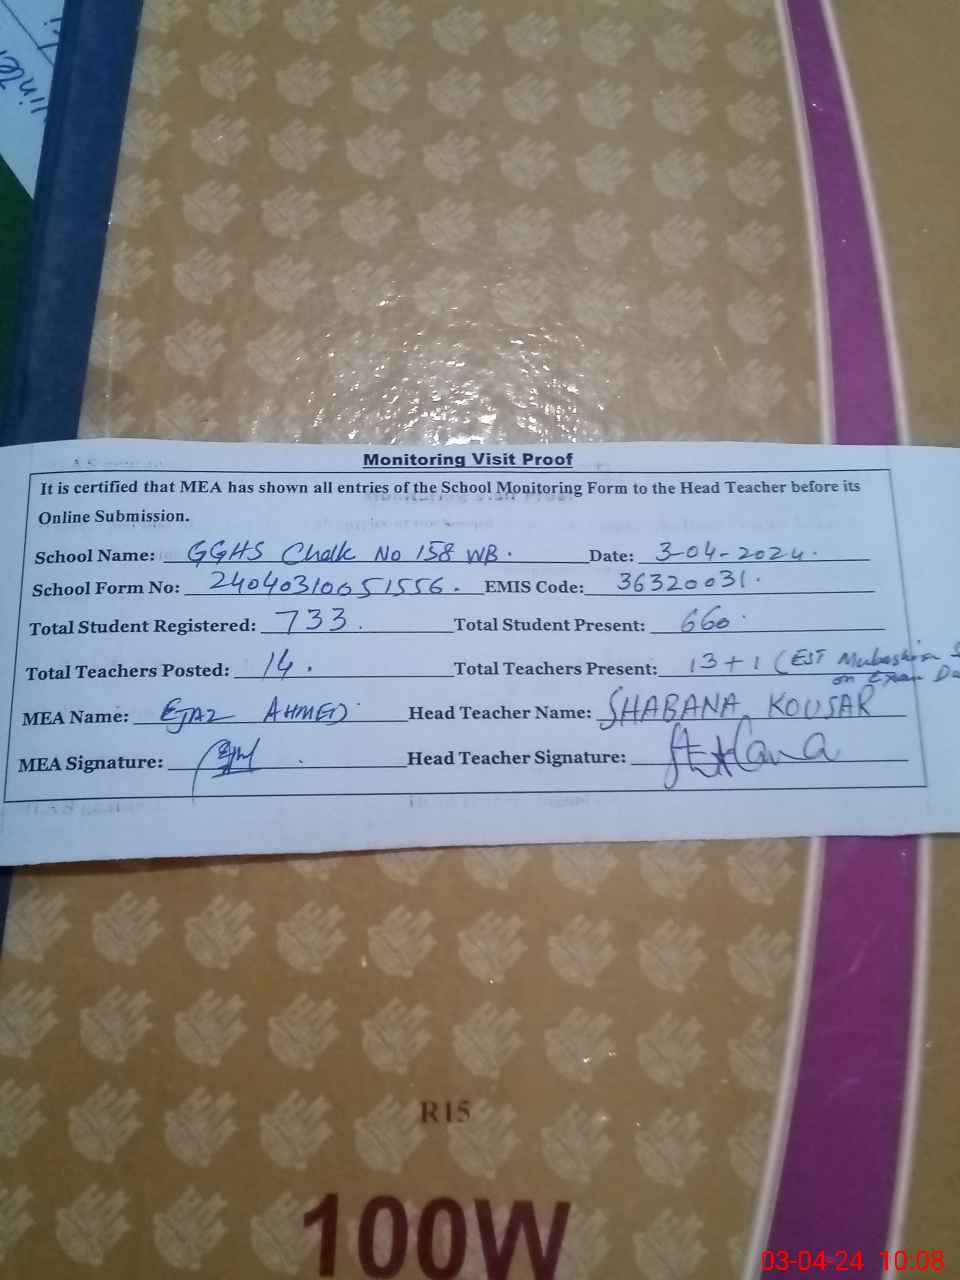 Monitoring Visit Proof
It is certified that MEA has shown all entries of the School Monitoring Form to the Head Teacher before its
Online Submission.
School Name: GGHS Chalk No 158 WB. Date: 3-04-2024.
School Form No: 24040310051556. EMIS Code: 36320031.
Total Student Registered: 733. Total Student Present: 660.
Total Teachers Posted: 14. Total Teachers Present: 13+1 (EST Mubashira
on Exam
MEA Name: EJAZ AHMED Head Teacher Name: SHABANA KOUSAR
MEA Signature: Head Teacher Signature:
R15
100W
03-04-24 10:08